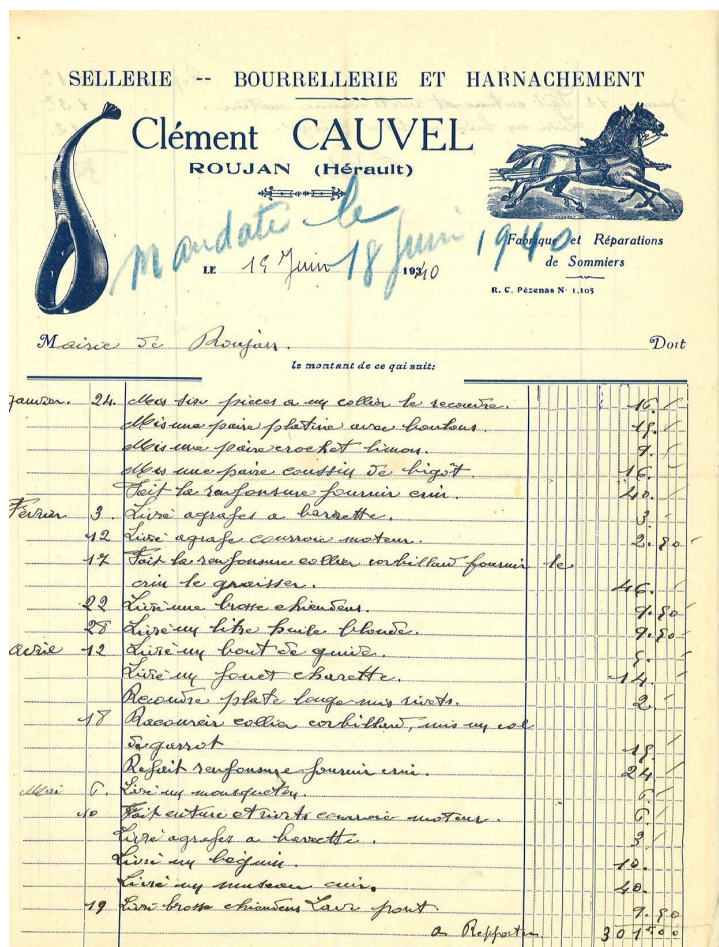 SELLERIE -- BOURRELLERIE ET HARNACHEMENT
Clément CAUVEL
ROUJAN (Hérault)
Mandaté le
18 Juin 1940
Fabrique et Réparations
de Sommiers
LE 15 Juin 1940
R. C. Pézenas N° 1.105
Mairie de Roujan. Doit
le montant de ce qui suit:
Janvier. 24. Mis six pièces a un collier le recoudre. 16.
Mis une paire platine avec boutons. 15.
Mis une paire crochet limon. 9.
Mis une paire coussin de bigot. 16.
Fait la renfonsure fournir crin. 40.
Février 3. Livré agrafes a barrette. 3.
12 Livré agrafe courroie moteur. 2.50
17 Fait la renfonsure collier corbillard fournir le
crin le graisser. 46.
22 Livré une brosse chiendens. 9.50
28 Livré un litre huile blonde. 9.50
Avril 12 Livré un bout de guide. 5.
Livré un fouet charette. 14.
Recoudre plate longe mis rivets. 2.
18 Racourcir collier corbillard, mis un col
de garrot 15.
Refait renfonsure fournir crin. 24
Mai 6. Livré un mousqueton. 6.
10 Fait enture et rivets courroie moteur. 6
Livré agrafes a barrette. 3
Livré un béguin. 10.
Livré un museau cuir. 40.
19 Livré brosse chiendens Lave pont 9.50
a Repporter 301.00